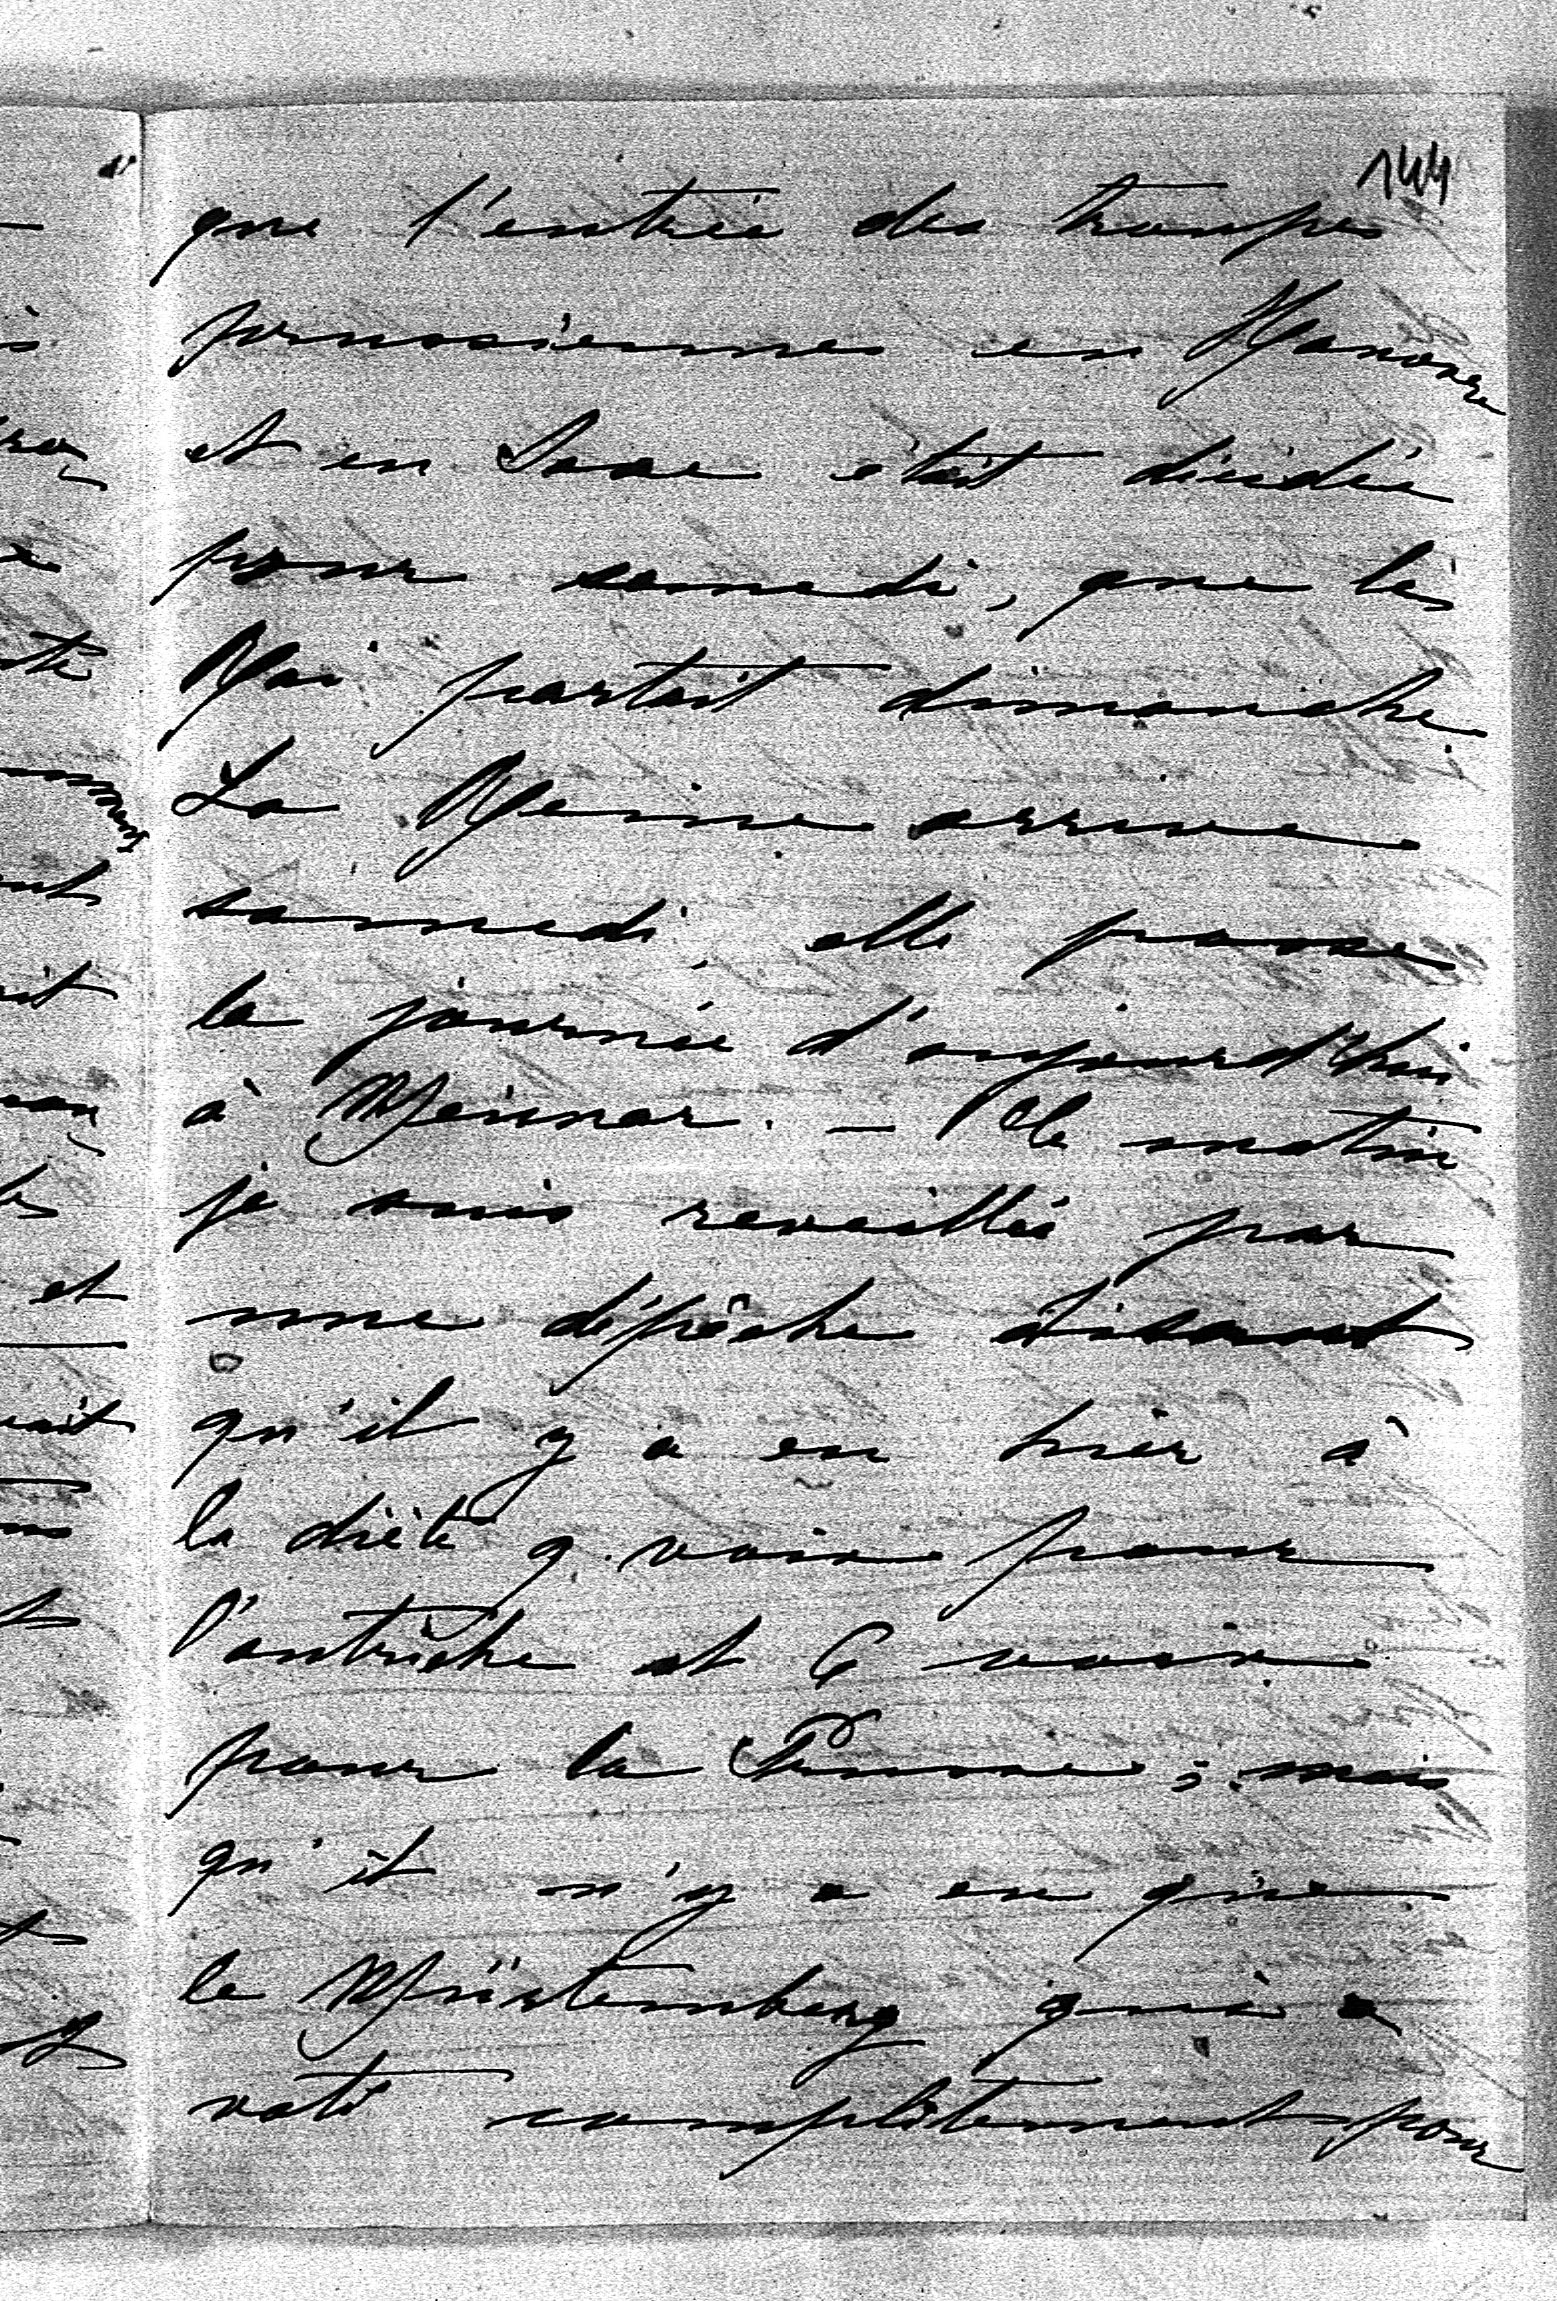 144
que l'entrée des troupes
prussiennes en Hanovre
et en Saxe était décidée
pour samedi, que le
Roi partait dimanche.
La Reine arrive
samedi, elle passe
la journée d'aujourd'hui
à Weimar. — Ce matin
je suis reveillée par
une dépêche disant
qu'il y a eu hier à
la diète 9. voix pour
l'autriche et 6 voix
pour la Prusse; mais
qu'il n'y a eu que
le Würtemberg qui a
voté complètement pour